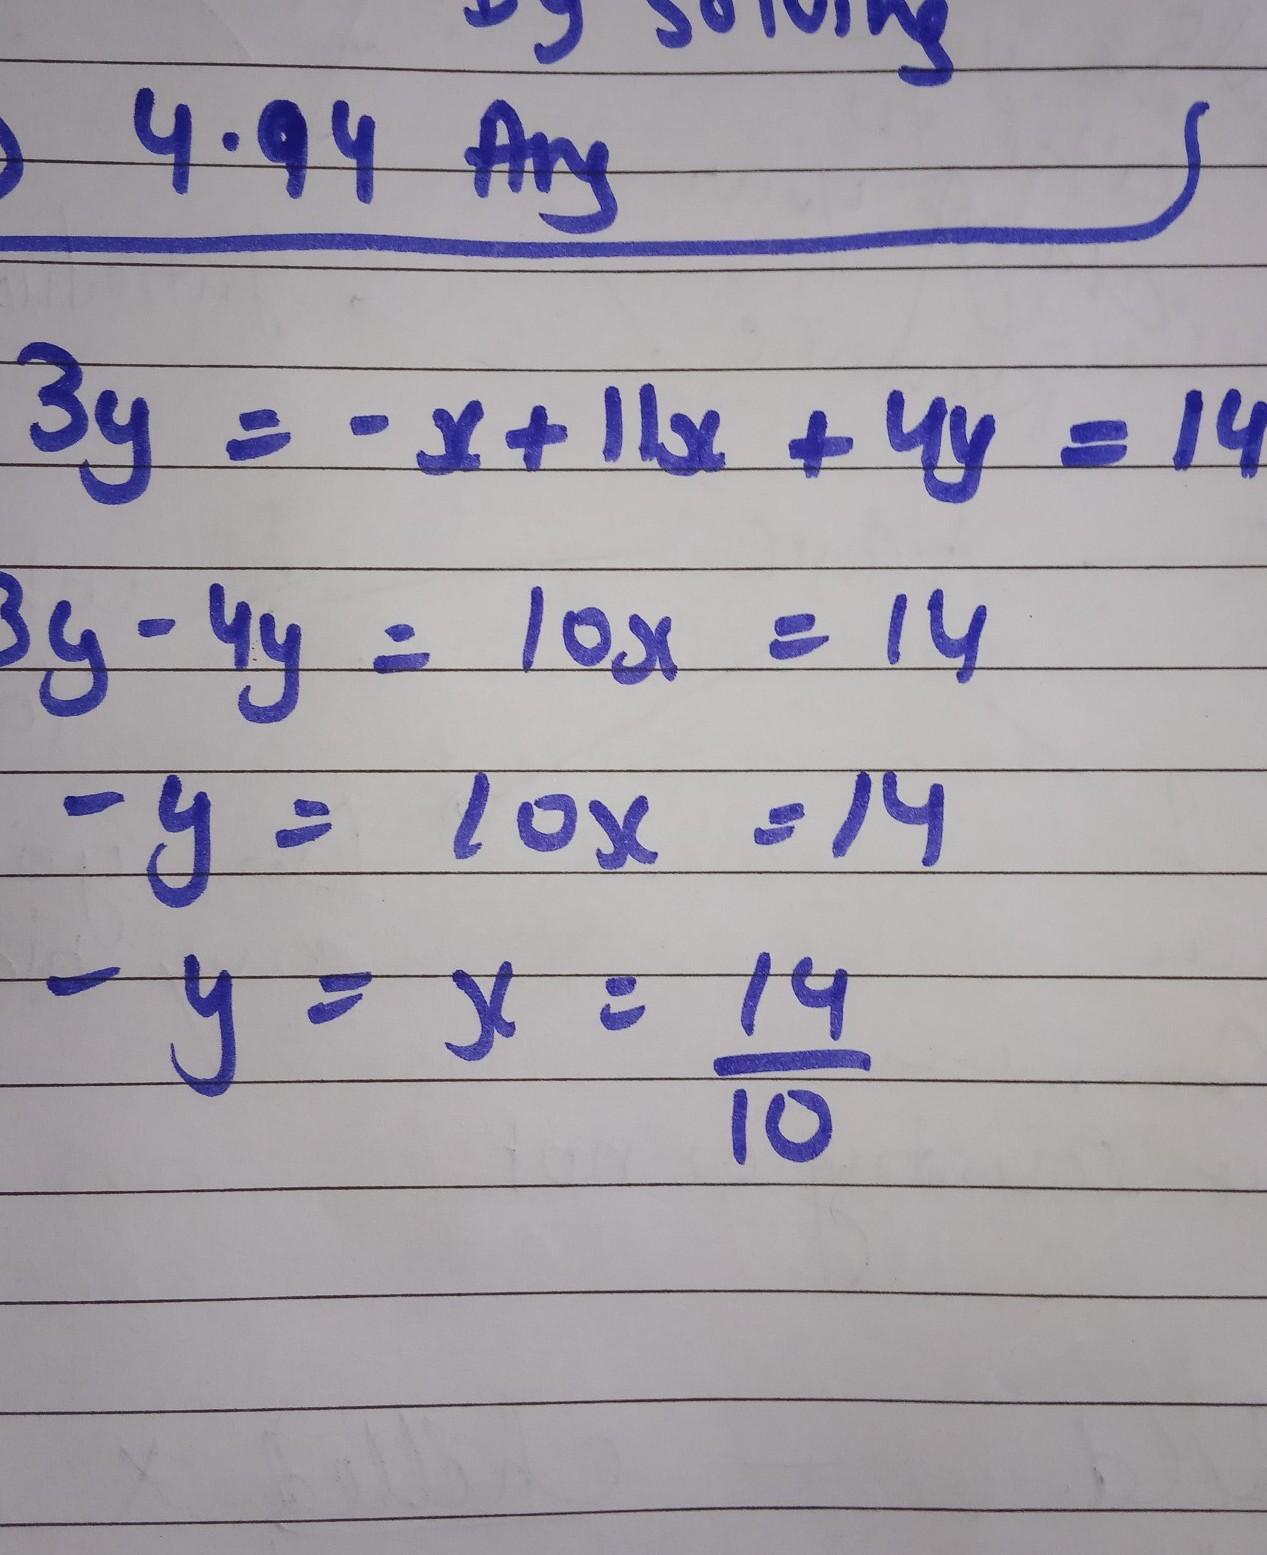 By solving
4.94 Ans
3y = -x + 11x + 4y = 14
3y - 4y = 10x = 14
- y = 10x = 14
- y = x = 14/10